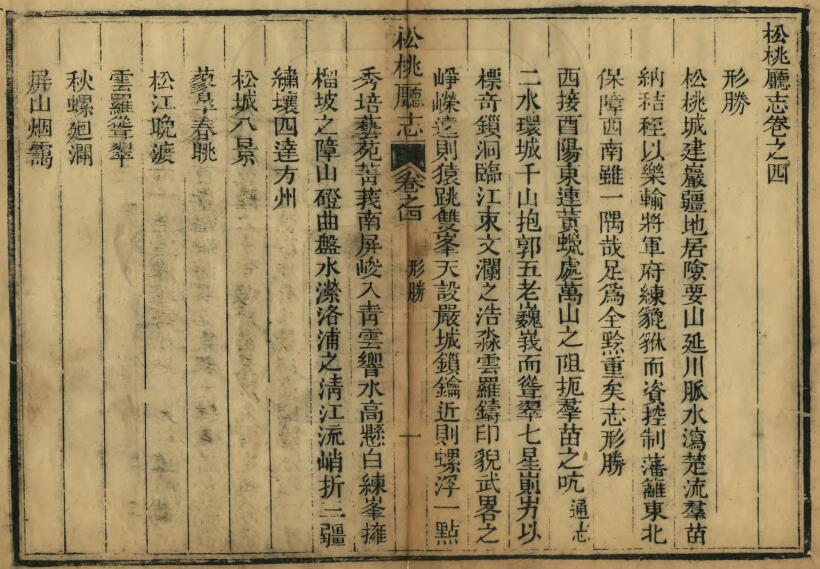 松桃廳志卷之四
形勝
松桃城建嚴疆地居險要山延川脈水瀉楚流羣苗
納秸秷以樂輸將軍府練貔貅而資控制藩籬東北
保障西南雖一隅哉足爲全黔重矣志形勝
西接酉陽東連黃蠟處萬山之阻扼羣苗之吭通志
二水環城千山抱郭五老巍峩而聳翠七星崱屴以
標奇鎖洞臨江東文瀾之浩淼雲羅鑄印貌武畧之
崢嶸遠則猿跳雙峯天設嚴城鎖鑰近則螺浮一點
松桃廳志 卷之四 形勝 一
秀培藝苑菁莪南屏峻入青雲響水高懸白練峯擁
榴坡之障山磴曲盤水瀠洛浦之淸江流峭折三疆
繡壤四達方州
松城八景
蓼皋春眺
松江晚渡
雲羅聳翠
秋螺廻瀾
屏山烟靄